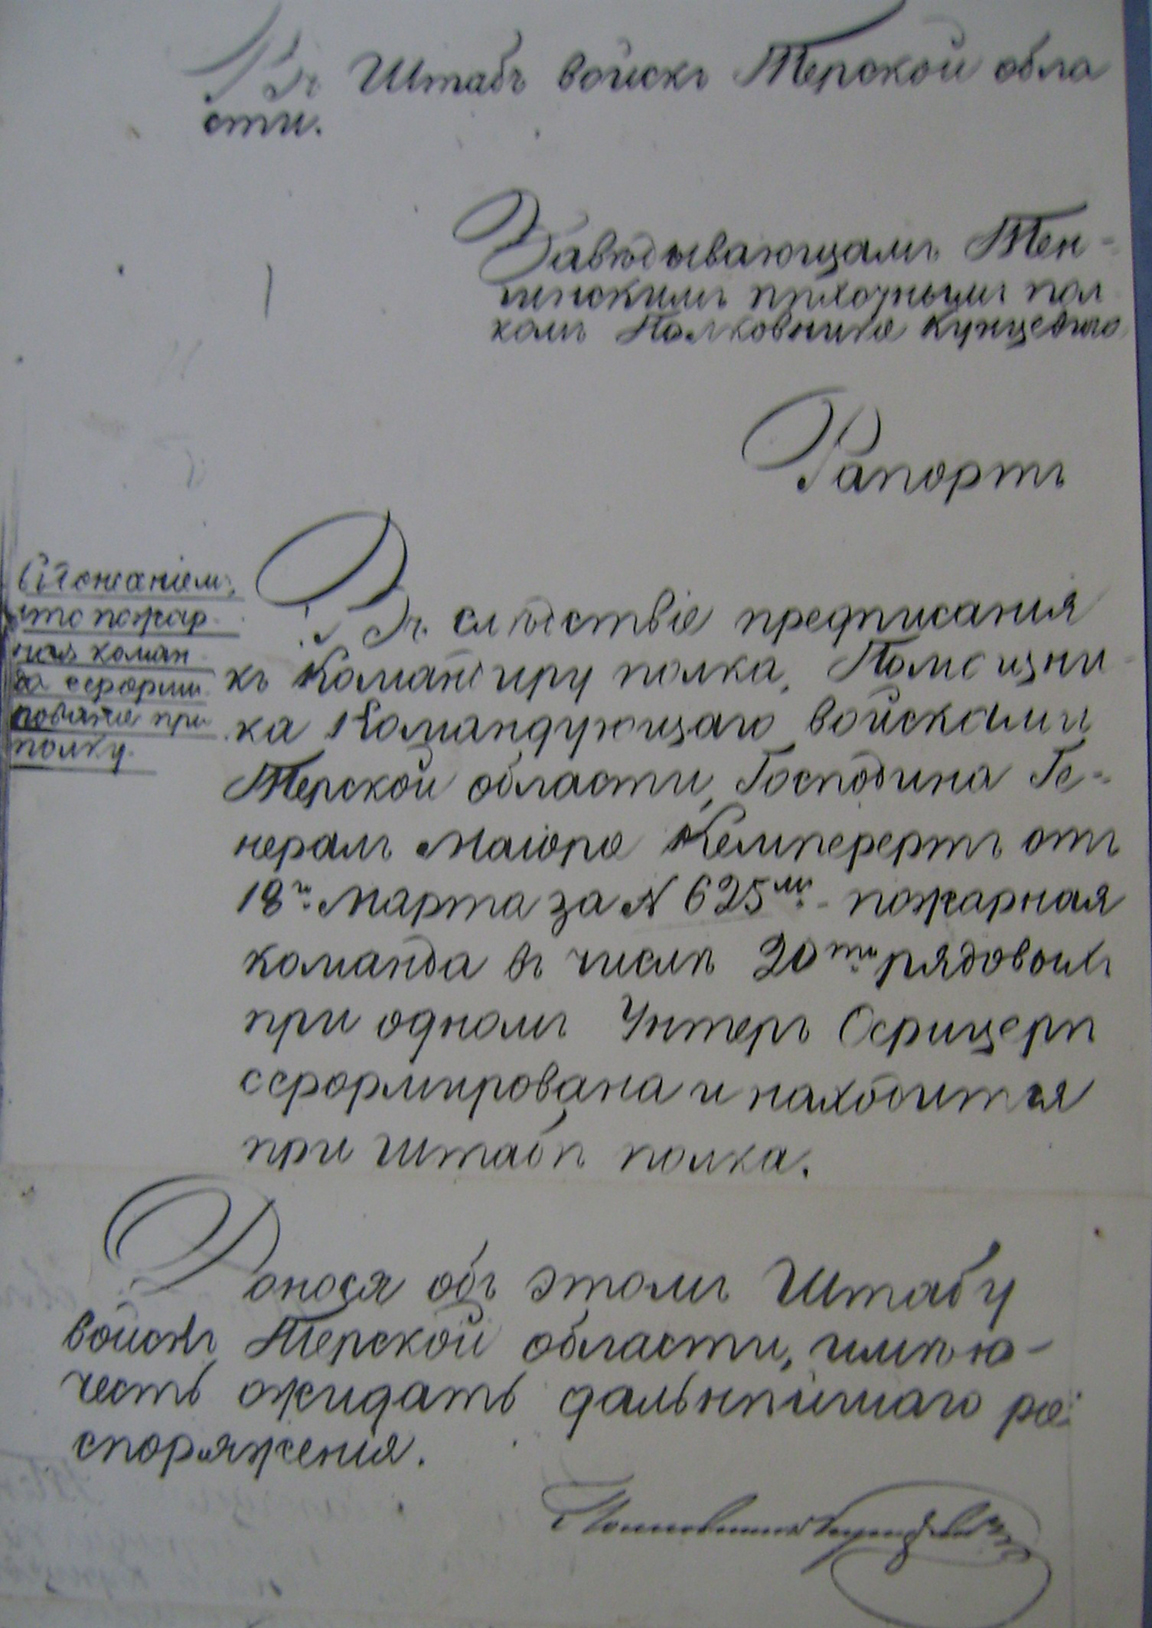 Въ Штабъ войскъ Терской обла
сти.
Завѣдывающаго Тен-
гинскимъ пѣхотнымъ пол
комъ Полковника Кунцевича
Рапортъ
что пожар-
ная коман-
да сформи
рована при
полку.
Въ слѣдствіе предписанія
къ Командиру полка, Помощни-
ка Командующаго войсками
Терской области, Господина Ге-
нералъ Маіора отъ
18го Марта за N 625мъ пожарная
команда въ числѣ 20ти рядовыхъ
при одномъ Унтеръ Офицерѣ
сформирована и находится
при штабѣ полка.
Донося объ этомъ Штабу
войскъ Терской области, имѣю
честь ожидать дальнѣйшаго ра
споряженія.
Полковникъ Кунцевичъ